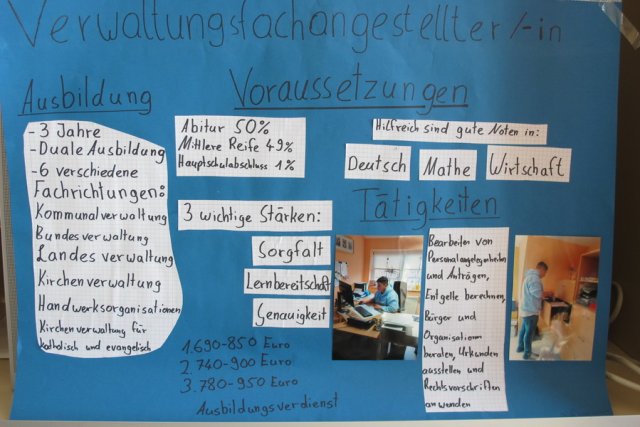 Verwaltungsfachangestellter/-in
Ausbildung
- 3 Jahre
- Duale Ausbildung
- 6 verschiedene
Fachrichtungen:
Kommunalverwaltung
Bundesverwaltung
Landesverwaltung
Kirchenverwaltung
Handwerksorganisationen
Kirchenverwaltung für
katholisch und evangelisch
Voraussetzungen
Abitur 50%
Mittlere Reife 49%
Hauptschulabschluss 1%
Hilfreich sind gute Noten in:
Deutsch
Mathe
Wirtschaft
3 wichtige Stärken:
Sorgfalt
Lernbereitschaft
Genauigkeit
1. 690-850 Euro
2. 740-900 Euro
3. 780-950 Euro
Ausbildungsverdienst
Tätigkeiten
Bearbeiten von
Personalangelegenheiten
und Anträgen,
Entgelte berechnen,
Bürger und
Organisationen
beraten, Urkunden
ausstellen und
Rechtsvorschriften
anwenden